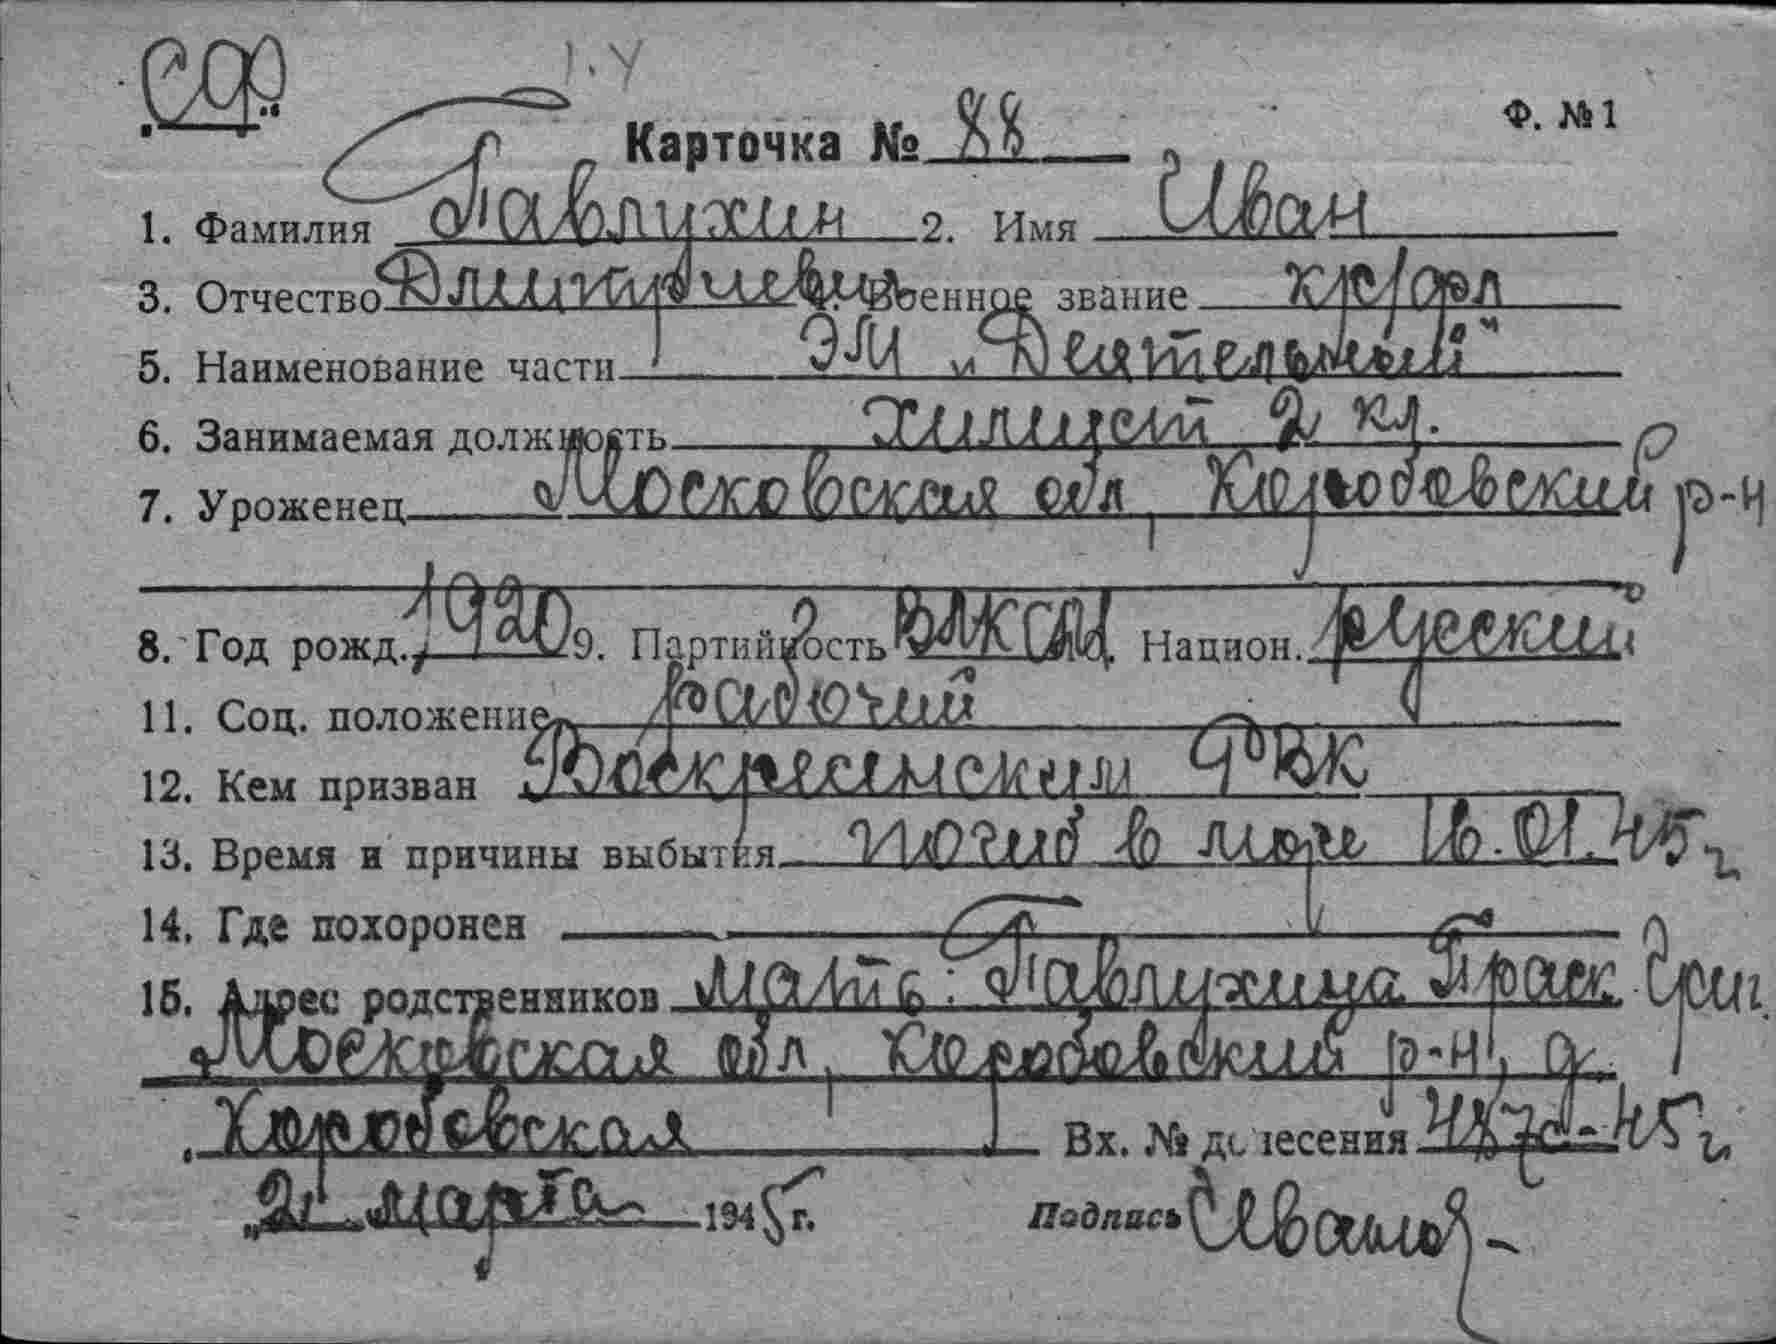 СФ
1.У
Ф. №1
Карточка № 88
1. Фамилия Гаврлухин 2. Имя Иван
3. Отчество Дмитриевич Военное звание кр/фл
5. Наименование части ЭМ „Деятельный"
6. Занимаемая должность химист 2 кл.
7. Уроженец Московская обл, Коробовский р-н
8. Год рожд. 1920 9. Партийность ВЛКСМ Национ. русский
11. Соц. положение рабочий
12. Кем призван Воскресенским РВК
13. Время и причины выбытия погиб в море 16.01.45 г
14. Где похоронен
15. Адрес родственников мать: Гаврлухина Праск. Григ.
Московская обл, Коробовский р-н, д.
Коробовская Вх. № донесения 45 г.
„2" марта 1945 г. Подпись